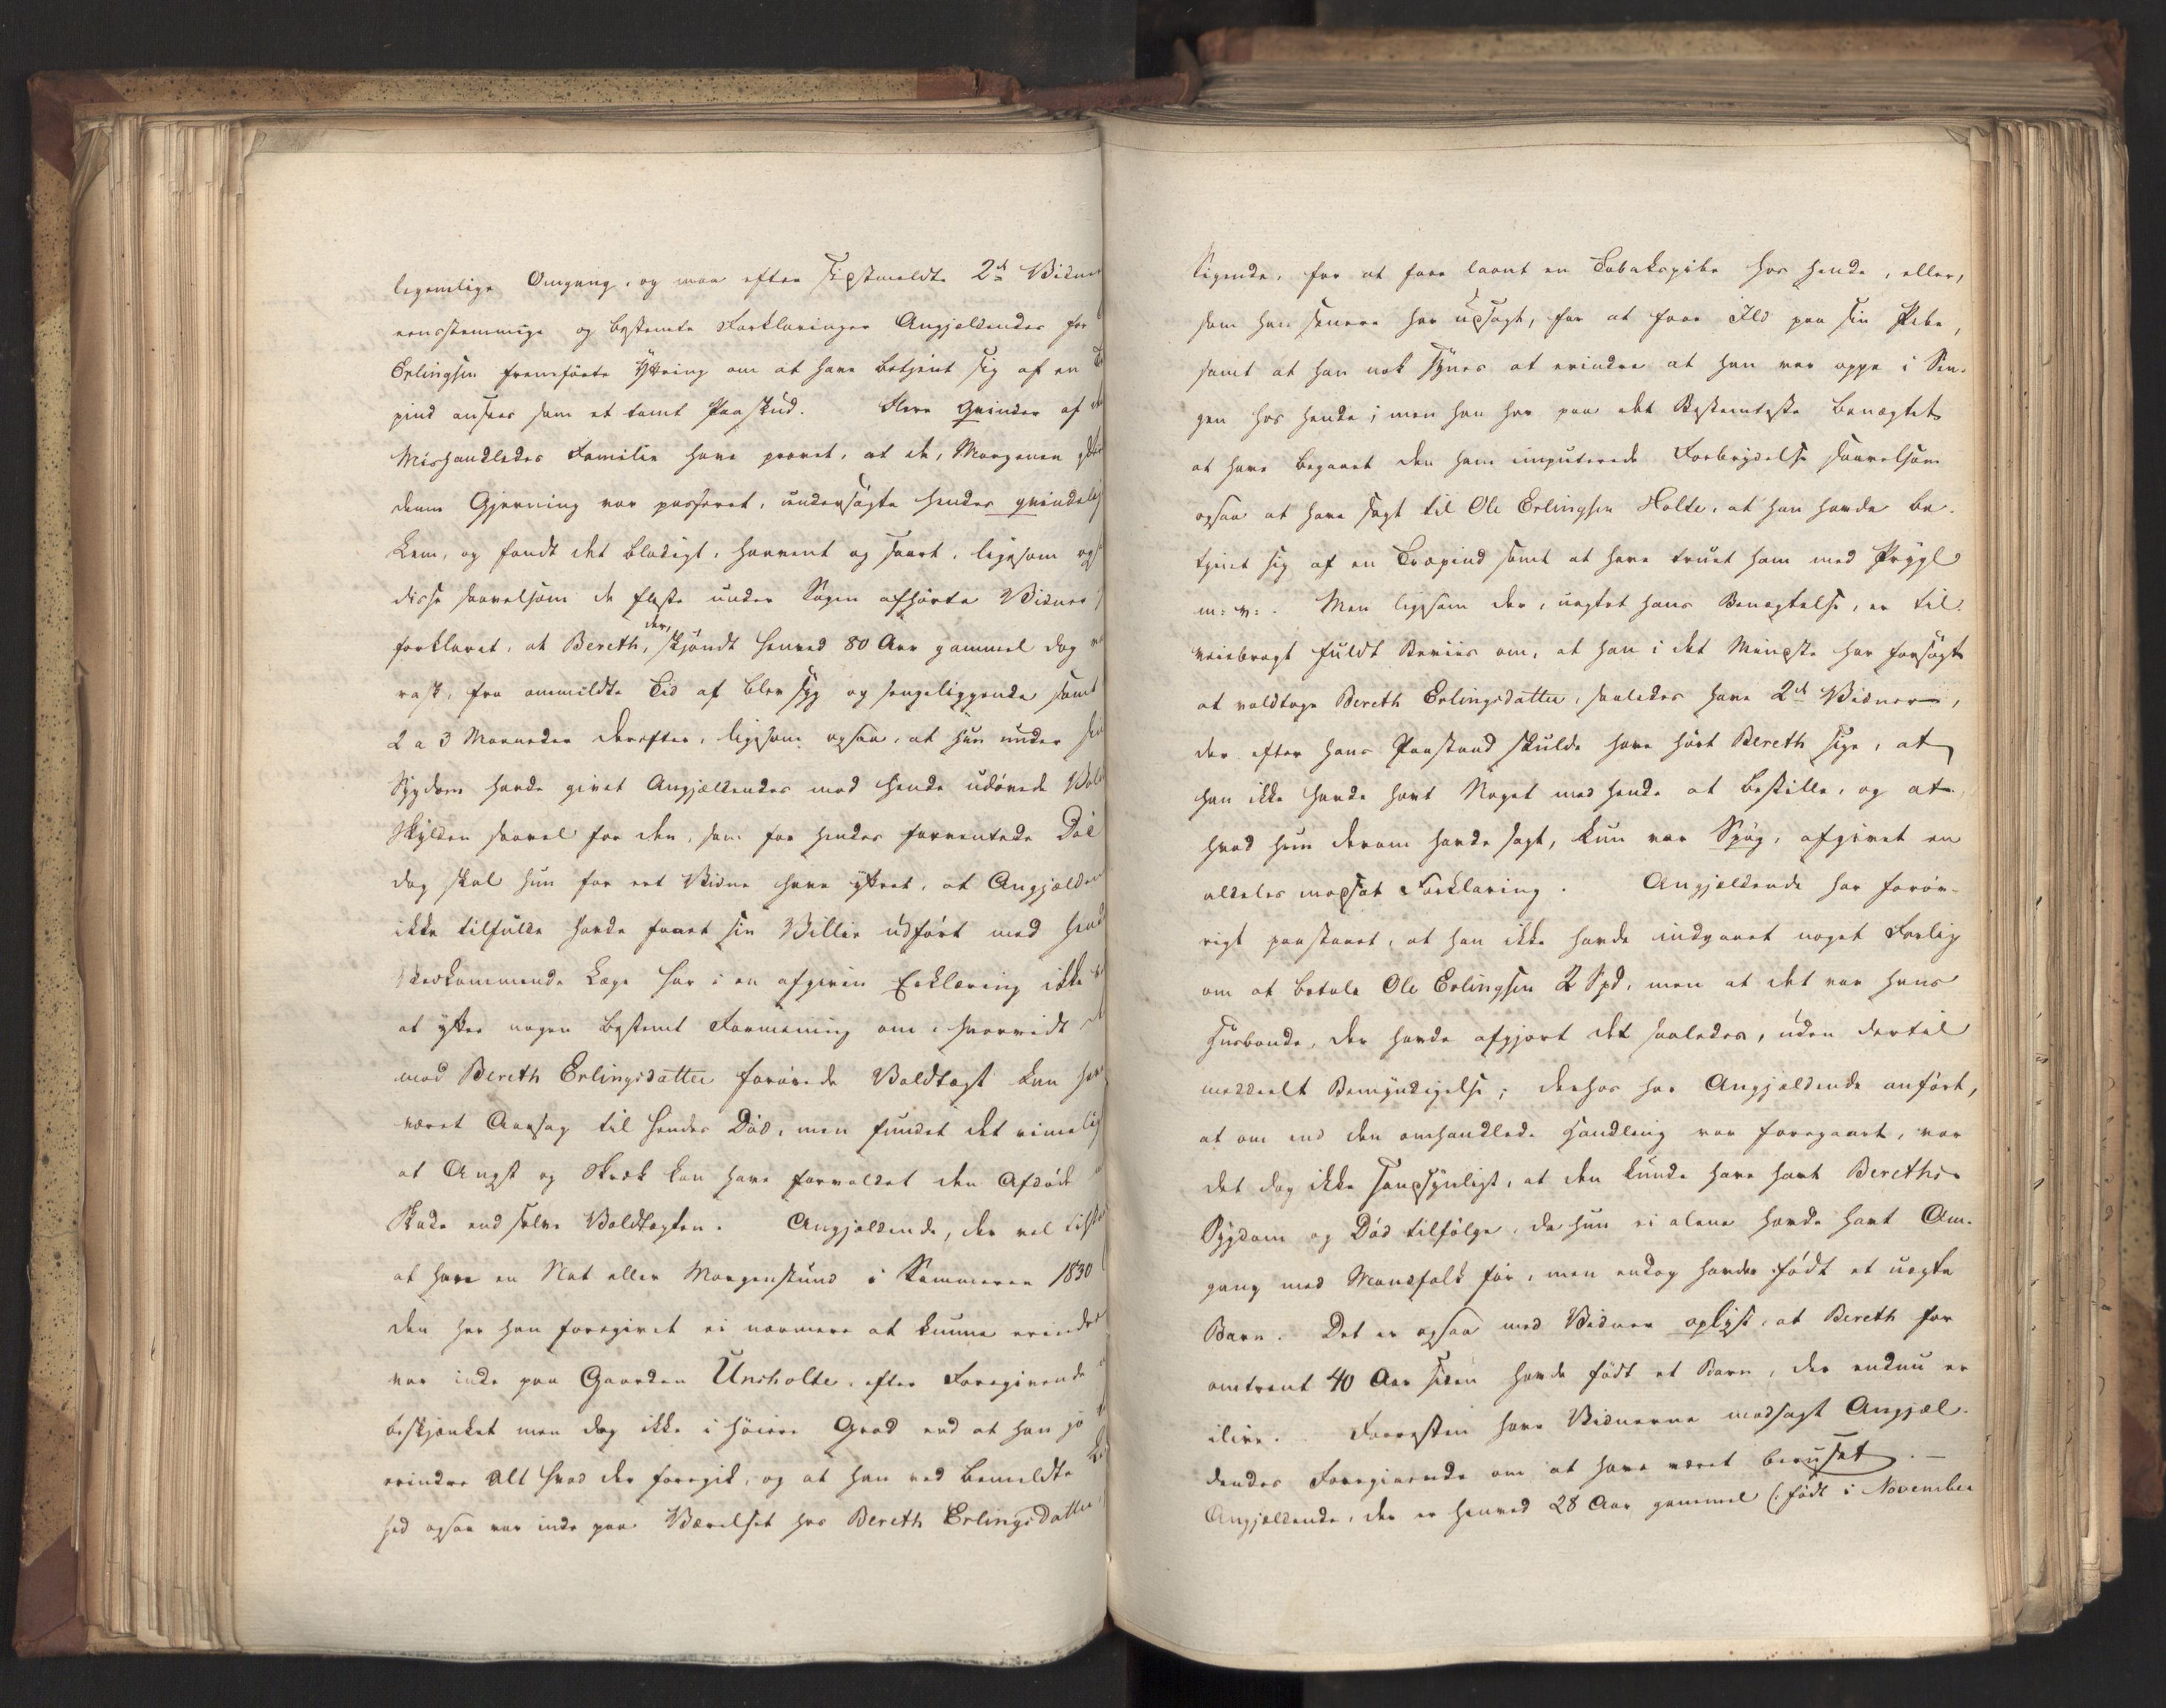 legemlige Omgang, og maa efter sidstmeldte 2de Vidner
eensstemmige og bestemte Forklaringer Angjældendes for
Erlingsen fremførte Yttring om at have betjent sig af en
pind ansees som et tomt Paaskud. Flere Qvinder af
Mishandledes Familie have prøvet, at de, Morgenen efter
denne Gjerning var passeret, undersøgte hendes qvindelig
Lem, og fandt det blodigt, hovent og saart, ligesom og
disse saavelsom de fleste under Sagen afhørte Vidner
forklaret, at Bereth, der, skjøndt henved 80 Aar gammel dog
rask, fra ommeldte Tid af blev syg og sengeliggende samt
2 a 3 Maaneder derefter, ligesom ogsaa, at hun under sin
Sygdom havde givet Angjældendes mod hende udøvede Vold
Skylden saavel for den, som for hendes forventede Død
dog skal hun for eet Vidne have yttret, at Angjælden
ikke tilfulde havde faaet sin Villie udført med hend
Vedkommende Læge har i en afgiven Erklæring ikke
at yttre nogen bestemt Formening om, hvorvidt
mod Bereth Erlingsdatter forøvede Voldtægt kan hav
været Aarsag til hendes Død, men fundet det rimelig
at Angst og Skræk kan have forvoldet den Afdøde
Skade end selve Voldtægten. Angjældende, der vel
at have en Nat eller Morgenstund i Sommeren 1830
den har han foregivet ei nærmere at kunne erindre
var inde paa Gaarden Unsholte, efter Foregivende
beskjænket men dog ikke i høiere Grad end at han jo
erindrer Alt hvad der foregik, og at han ved bemeldte
hed ogsaa var inde paa Værelset hos Bereth Erlingsdatter
sigende, for at faae laant en Tobakspibe hos hende, eller,
som han senere har udsagt, for at faae Ild paa sin Pibe,
samt at han nok synes at erindre at han var oppe i Sen-
gen hos hende; men han har paa det Bestemteste benægtet
at have begaaet den ham imputerede Forbrydelse saavelsom
ogsaa at have sagt til Ole Erlingsen Holte, at han havde be-
tjent sig af en Træpind samt at have truet ham med Prygl
m: v: . Men ligesom der, uagtet hans Benægtelse, er til-
veiebragt fuldt Beviis om, at han i det Mindste har forsøgt
at voldtage Bereth Erlingsdatter, saaledes have 2de Vidner,
der efter hans Paastand skulde have hørt Bereth sige, at
han ikke havde havt Noget med hende at bestille, og at
hvad hun derom havde sagt, kun var Spøg, afgivet en
aldeles modsat Forklaring. Angjældende har forøv-
rigt paastaaet, at han ikke havde indgaaet noget Forlig
om at betale Ole Erlingsen 2 Spd, men at det var hans
Husbonde, der havde afgjort det saaledes, uden dertil
meddeelt Bemyndigelse; derhos har Angjældende anført,
at om end den omhandlede Handling var foregaaet, var
det dog ikke sandsynligt, at den kunde have havt Bereths
Sygdom og Død tilfølge, da hun ei alene havde havt Om-
gang med Mandfolk før, men endog havde født et uægte
Barn. Det er ogsaa med Vidner oplyst, at Bereth for
omtrent 40 Aar siden havde født et Barn, der endnu er
ilive. Forresten have Vidnerne modsagt Angjæl-
dendes Foregivende om at have været beruset. —
Angjældende, der er henved 28 Aar gammel (: født i November